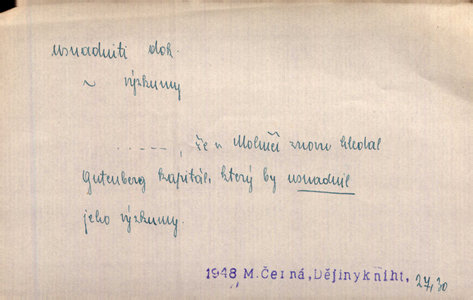 usnadniti dok.
~ výzkumy
....., že v Mohuči znovu hledal
Gutenberg kapitál, který by usnadnil
jeho výzkumy.
1948 M. Černá, Dějiny kniht, 27,30